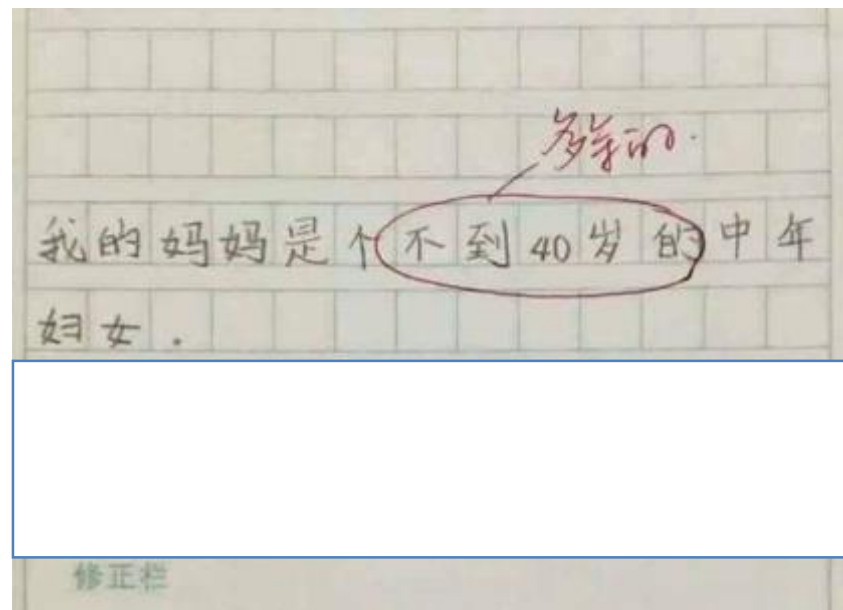 多余的.
我的妈妈是个不到40岁的中年
妇女.
修正栏